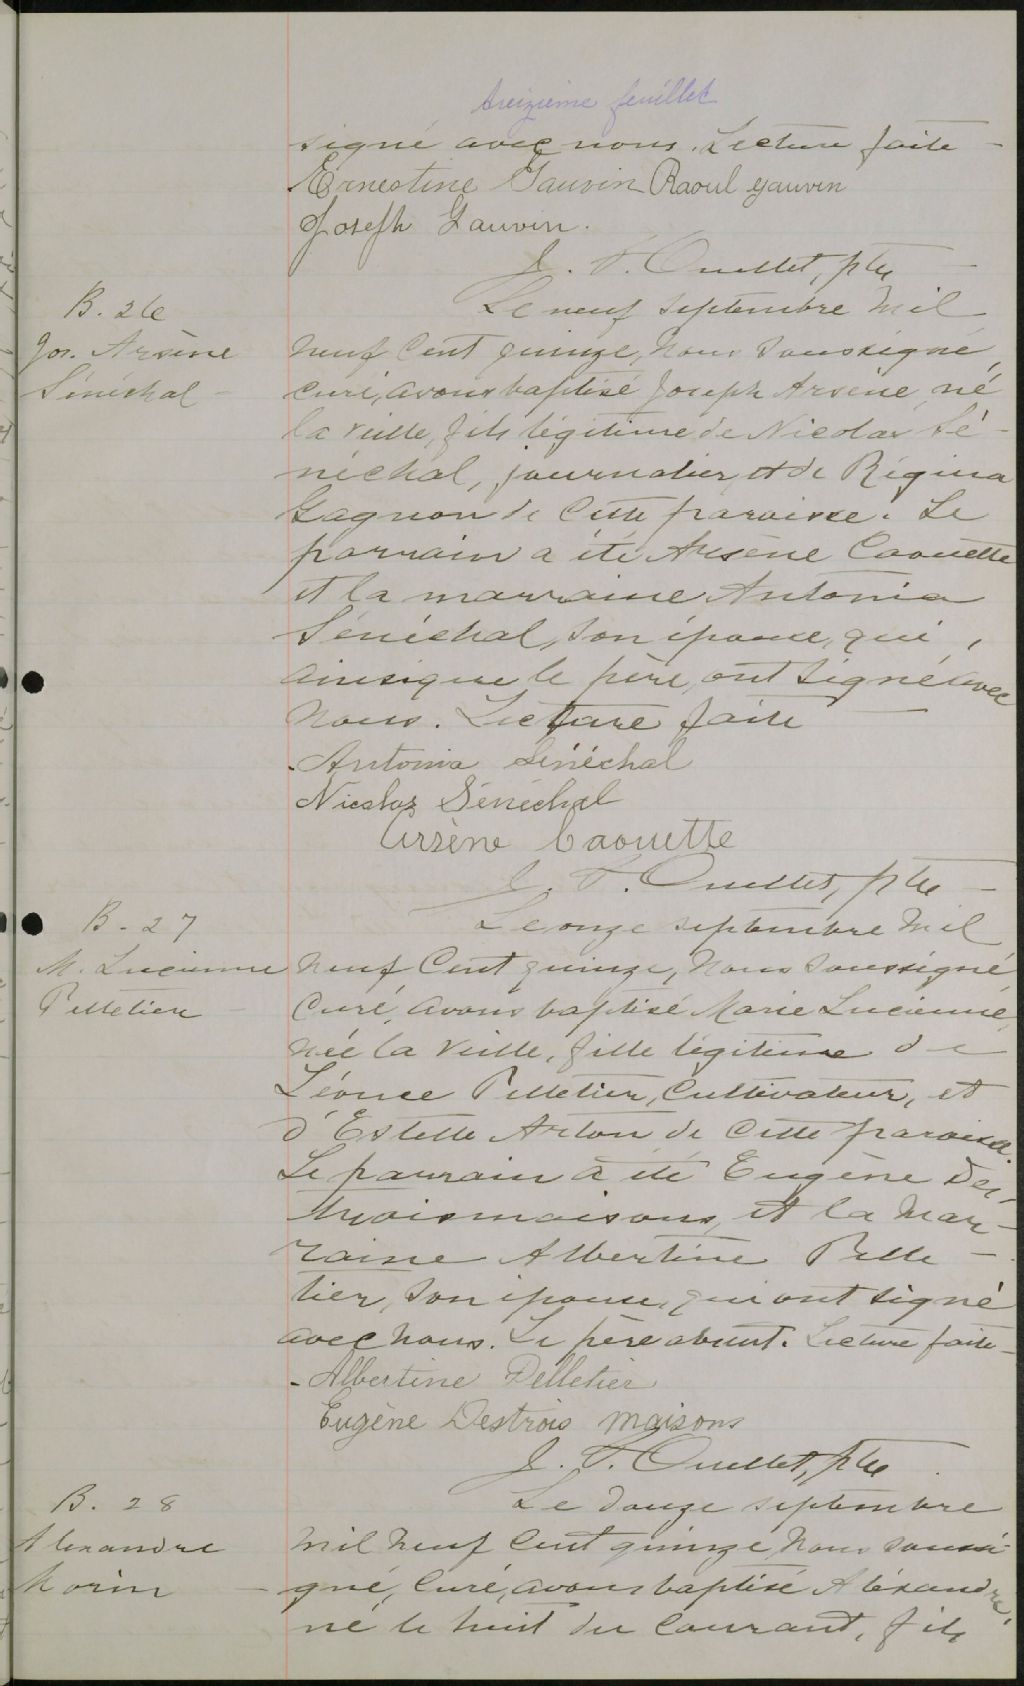 treizième feuillet
signé avec nous. Lecture faite -
Ernestine Gauvin Raoul gauvin
Joseph Gauvin.
J. F. Ouellet, ptre -
B. 26
Le neuf septembre mil
Jos. Arsène
neuf cent quinze, nous soussigné,
Sénéchal -
curé, avons baptisé Joseph Arsène, né
la veille, fils légitime de Nicolas Sé-
néchal, journalier, et de Régina
Gagnon de cette paroisse. Le
parrain a été Arsène Caouette
et la marraine Antonia
Sénéchal, son épouse, qui,
ainsi que le père, ont signé avec
nous. Lecture faite -
Antonia Sénéchal
Nicolas Sénéchal
Arsène Caouette
J. F. Ouellet, ptre -
B. 27
Le onze septembre mil
M. Lucienne
neuf cent quinze, nous soussigné
Pelletier -
curé, avons baptisé Marie Lucienne,
née la veille, fille légitime de
Léonce Pelletier, cultivateur, et
d'Estelle de cette paroisse.
Le parrain a été Eugène Des-
troismaisons, et la mar-
raine Albertine Pelle-
tier, son épouse, qui ont signé
avec nous. Le père absent. Lecture faite -
Albertine Pelletier
Eugène Destrois maisons
J. F. Ouellet, ptre
B. 28
Le douze septembre
Alexandre
mil neuf cent quinze, nous soussi-
Morin -
gné, curé, avons baptisé Alexandre,
né le huit du courant, fils